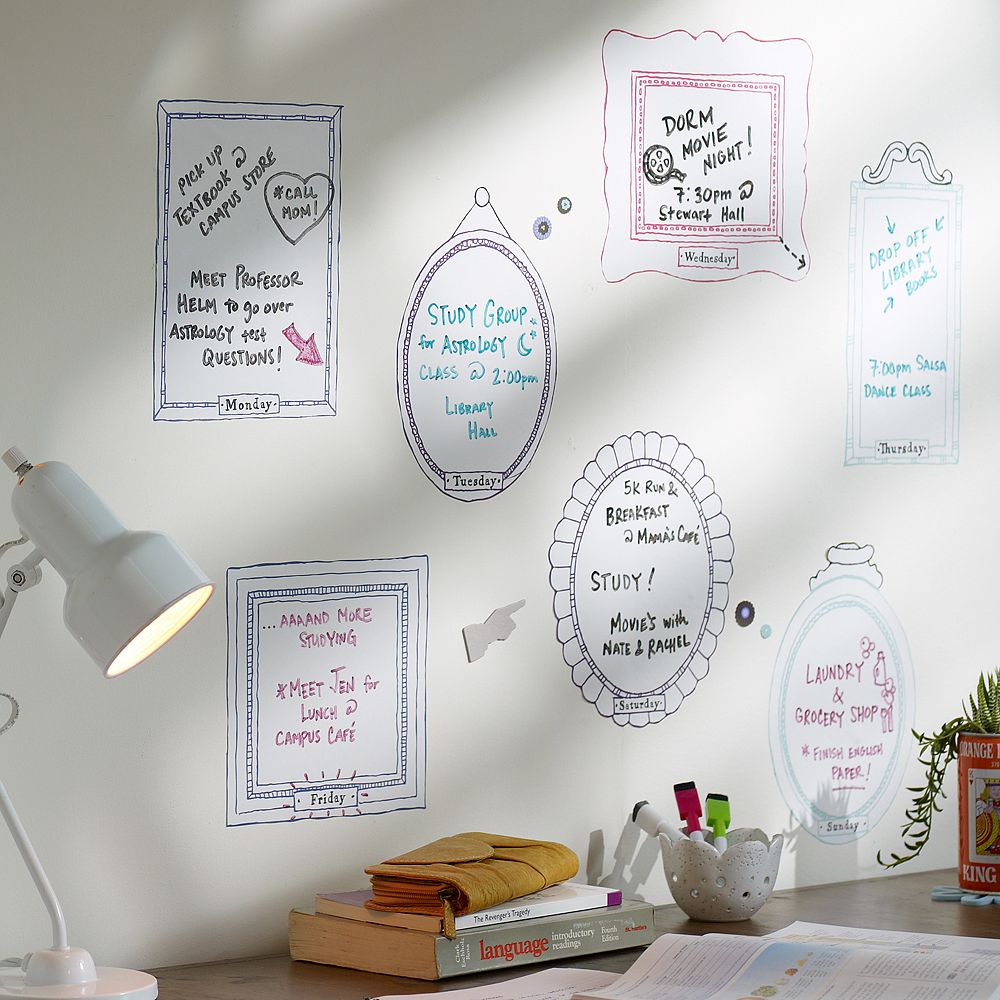 PICK UP
TEXTBOOK @
CAMPUS STORE
*CALL
MOM!
MEET PROFESSOR
HELM to go over
ASTROLOGY test
QUESTIONS!
·Monday·
STUDY GROUP
for ASTROLOGY
CLASS @ 2:00pm
LIBRARY
HALL
·Tuesday·
DORM
MOVIE
NIGHT!
7:30pm @
Stewart Hall
·Wednesday·
DROP OFF
LIBRARY
BOOKS
7:00pm SALSA
DANCE CLASS
·Thursday·
...AAAAND MORE
STUDYING
*MEET JEN for
LUNCH @
CAMPUS CAFÉ
·Friday·
5K RUN &
BREAKFAST
@ MAMA'S CAFÉ
STUDY!
MOVIE'S with
NATE & RACHEL
·Saturday·
LAUNDRY
&
GROCERY SHOP
*FINISH ENGLISH
PAPER!
·Sunday·
The Revenger's Tragedy
Clark
Eschholz
Rosa
language
introductory
readings
Fourth
Edition
ORANGE
KING